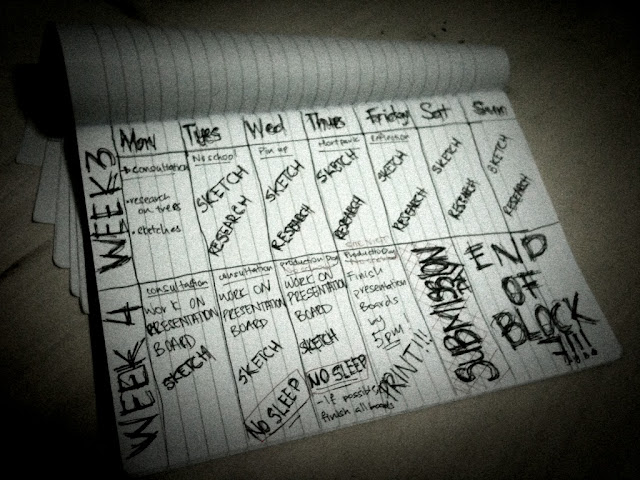 Mon Tues Wed Thurs Friday Sat Sun
WEEK 3
consultation
• research
on trees
• sketches
No school
SKETCH
RESEARCH
Pin up
SKETCH
RESEARCH
SKETCH
RESEARCH
SKETCH
RESEARCH
SKETCH
RESEARCH
SKETCH
RESEARCH
WEEK 4
consultation
WORK ON
PRESENTATION
BOARD
SKETCH
consultation
WORK ON
PRESENTATION
BOARD
SKETCH
NO SLEEP
production Day
WORK ON
PRESENTATION
BOARD
SKETCH
NO SLEEP
- If possible
finish all boards
Production Day
Finish
presentation
Boards
by
5 PM
PRINT!!!
SUBMISSION
END
OF
BLOCK
7!!!!